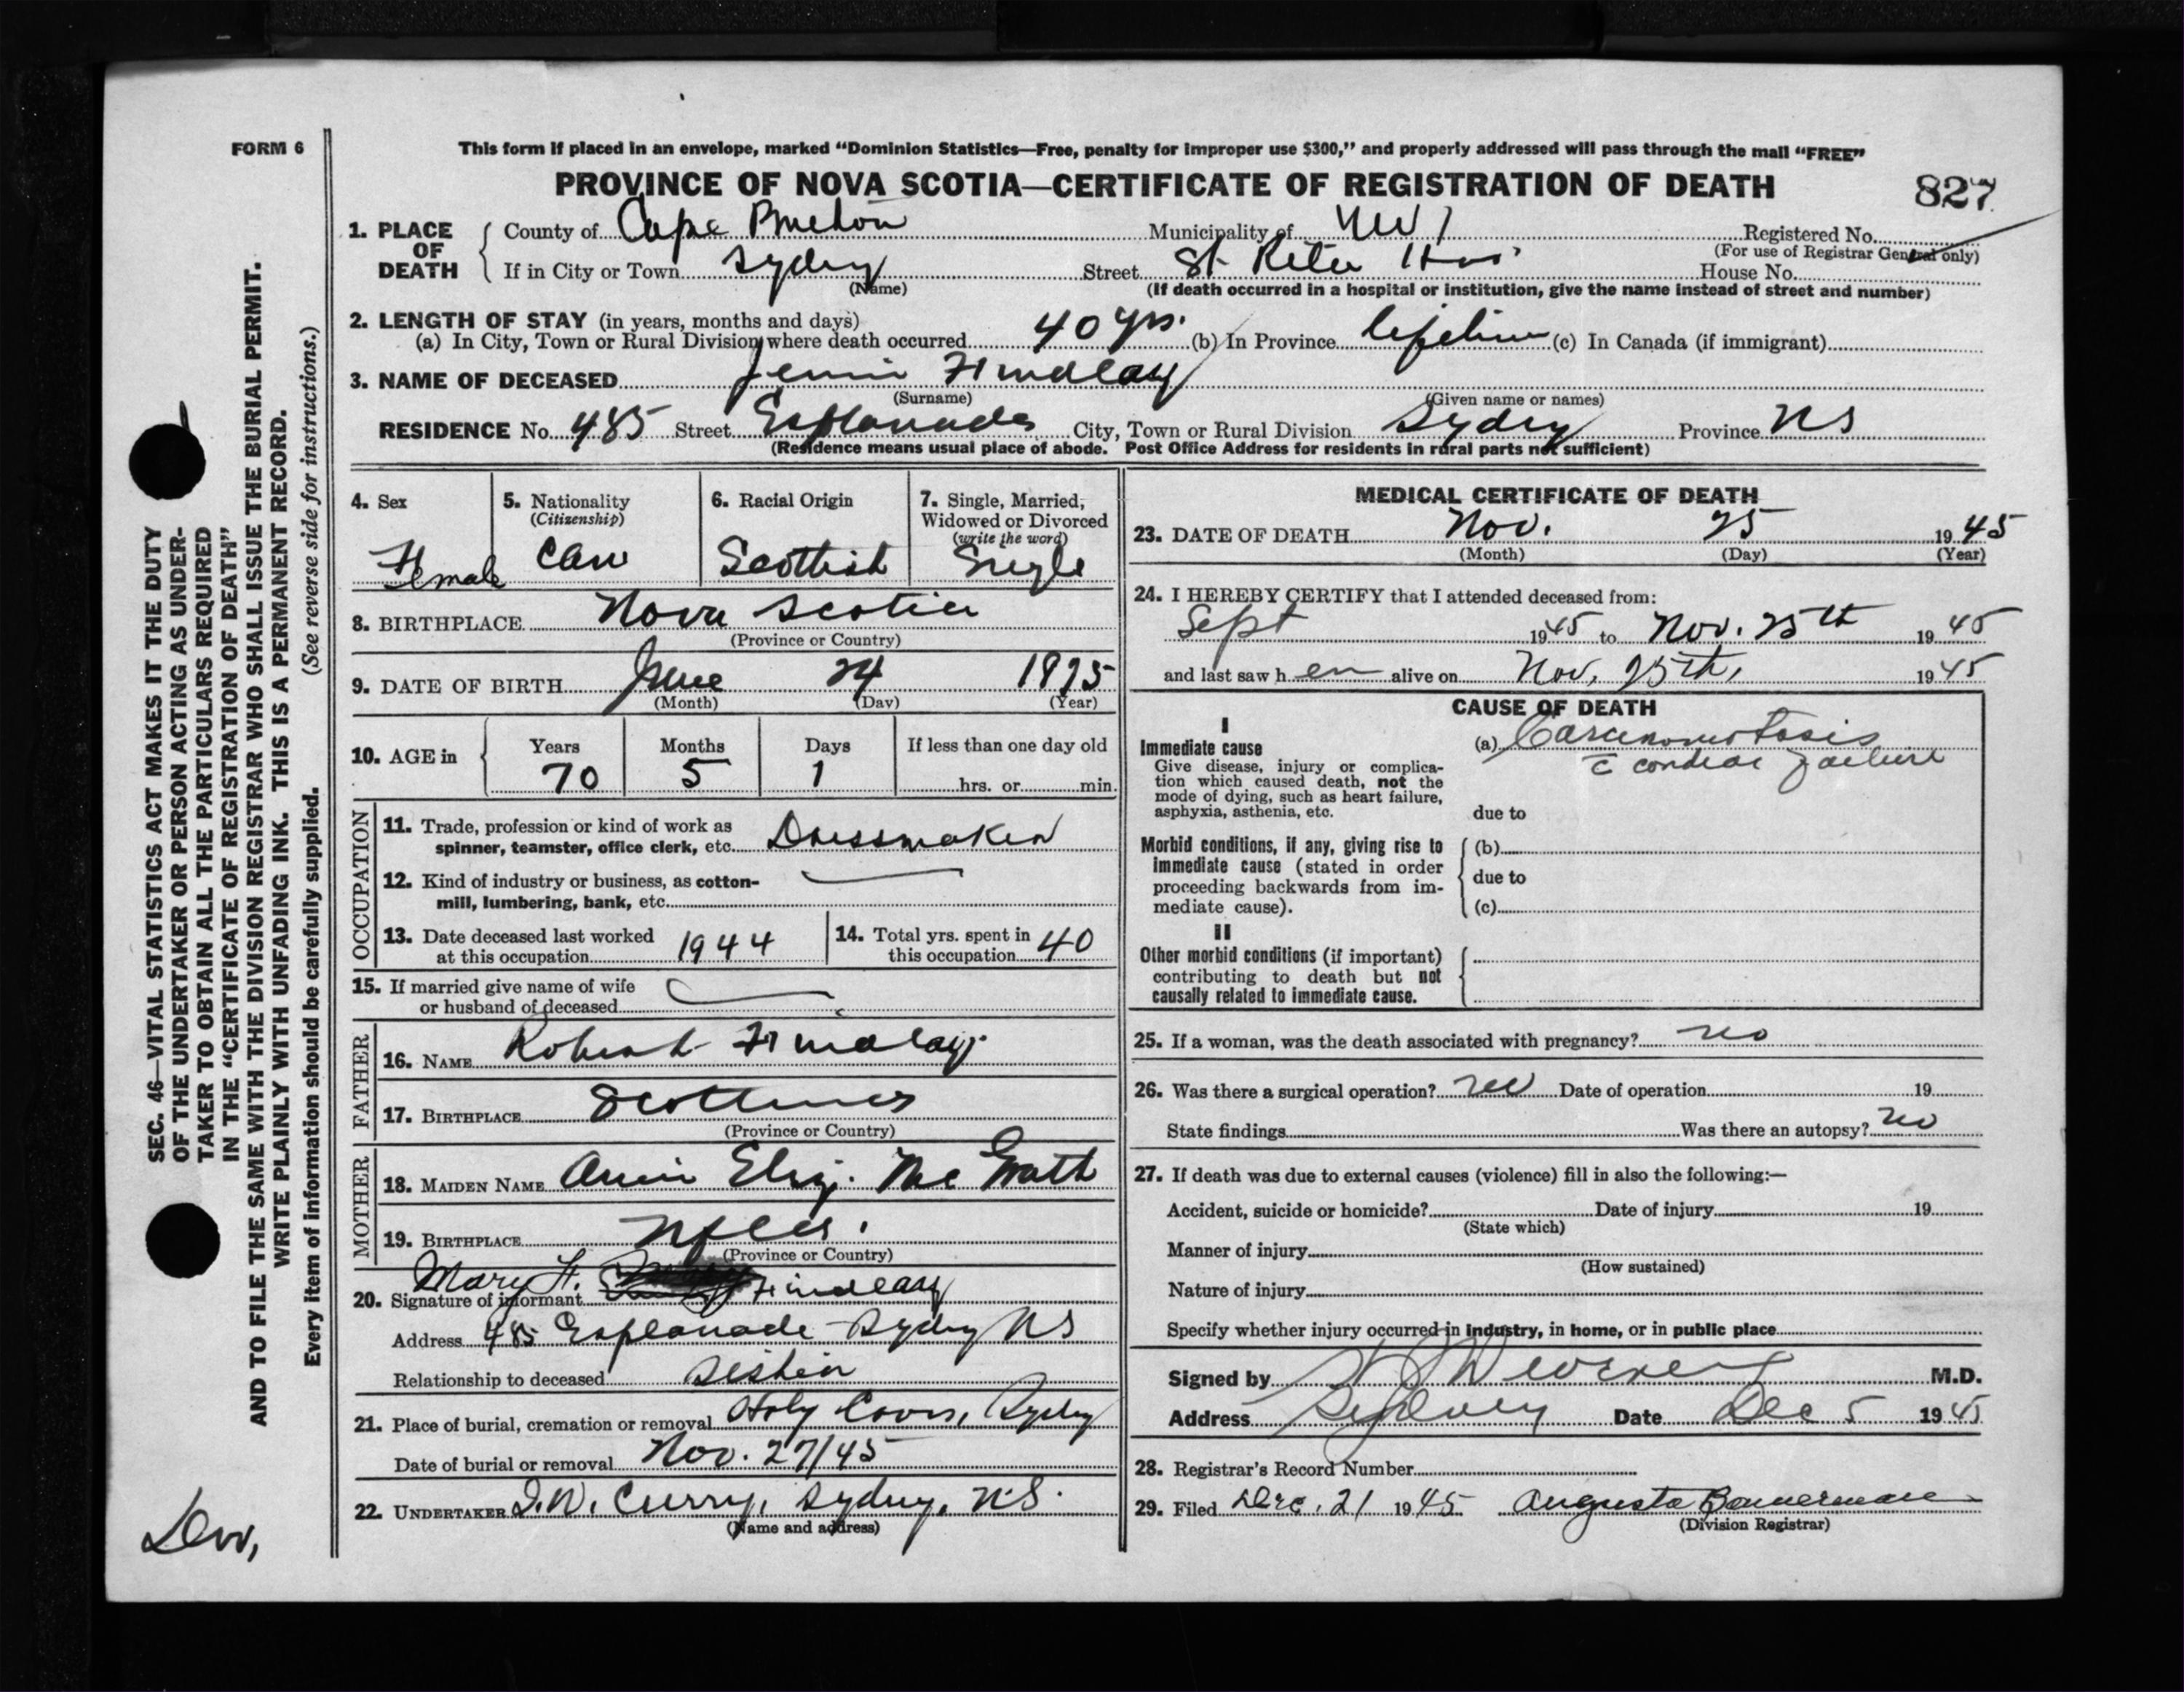 FORM 6
This form if placed in an envelope, marked "Dominion Statistics—Free, penalty for improper use $300," and properly addressed will pass through the mail "FREE"
PROVINCE OF NOVA SCOTIA—CERTIFICATE OF REGISTRATION OF DEATH
827
1. PLACE OF DEATH
County of Cape Breton Municipality of Registered No.
(For use of Registrar General only)
If in City or Town Sydney Street St. Rita Hos. House No.
(Name) (If death occurred in a hospital or institution, give the name instead of street and number)
2. LENGTH OF STAY (in years, months and days)
(a) In City, Town or Rural Division where death occurred 40 yrs. (b) In Province lifetime (c) In Canada (if immigrant)
3. NAME OF DECEASED Jennie Findlay
(Surname) (Given name or names)
RESIDENCE No. 485 Street Esplanade City, Town or Rural Division Sydney Province NS
(Residence means usual place of abode. Post Office Address for residents in rural parts not sufficient)
4. Sex
Female
5. Nationality
(Citizenship)
Can
6. Racial Origin
Scottish
7. Single, Married, Widowed or Divorced
(write the word)
Single
8. BIRTHPLACE Nova Scotia
(Province or Country)
9. DATE OF BIRTH June 24 1875
(Month) (Day) (Year)
10. AGE in
Years Months Days If less than one day old
70 5 1 hrs. or min.
OCCUPATION
11. Trade, profession or kind of work as
spinner, teamster, office clerk, etc. Dressmaker
12. Kind of industry or business, as cotton-
mill, lumbering, bank, etc.
13. Date deceased last worked
at this occupation 1944
14. Total yrs. spent in
this occupation 40
15. If married give name of wife
or husband of deceased
FATHER
16. NAME Robert Findlay
17. BIRTHPLACE
(Province or Country)
MOTHER
18. MAIDEN NAME Annie Eliz. McGrath
19. BIRTHPLACE Nfld.
(Province or Country)
20. Signature of informant Mary F. Findlay
Address 485 Esplanade Sydney NS
Relationship to deceased sister
21. Place of burial, cremation or removal Holy Cross, Sydney
Date of burial or removal Nov. 27/45
22. UNDERTAKER J.W. Curry, Sydney, N.S.
(Name and address)
MEDICAL CERTIFICATE OF DEATH
23. DATE OF DEATH Nov. 25 1945
(Month) (Day) (Year)
24. I HEREBY CERTIFY that I attended deceased from:
Sept 1945 to Nov. 25th 1945
and last saw h er alive on Nov. 25th, 1945
CAUSE OF DEATH
I
Immediate cause
Give disease, injury or complica-
tion which caused death, not the
mode of dying, such as heart failure,
asphyxia, asthenia, etc.
(a) Carcinomatosis
c̄ cardiac failure
due to
Morbid conditions, if any, giving rise to
immediate cause (stated in order
proceeding backwards from im-
mediate cause).
(b)
due to
(c)
II
Other morbid conditions (if important)
contributing to death but not
causally related to immediate cause.
25. If a woman, was the death associated with pregnancy? no
26. Was there a surgical operation? no Date of operation 19
State findings Was there an autopsy? no
27. If death was due to external causes (violence) fill in also the following:—
Accident, suicide or homicide? Date of injury 19
(State which)
Manner of injury
(How sustained)
Nature of injury
Specify whether injury occurred in industry, in home, or in public place
Signed by M.D.
Address Sydney Date Dec 5 1945
28. Registrar's Record Number
29. Filed Dec. 21 1945 Augusta Bannerman
(Division Registrar)
SEC. 46—VITAL STATISTICS ACT MAKES IT THE DUTY
OF THE UNDERTAKER OR PERSON ACTING AS UNDER-
TAKER TO OBTAIN ALL THE PARTICULARS REQUIRED
IN THE "CERTIFICATE OF REGISTRATION OF DEATH"
AND TO FILE THE SAME WITH THE DIVISION REGISTRAR WHO SHALL ISSUE THE BURIAL PERMIT.
WRITE PLAINLY WITH UNFADING INK. THIS IS A PERMANENT RECORD.
Every item of information should be carefully supplied. (See reverse side for instructions.)